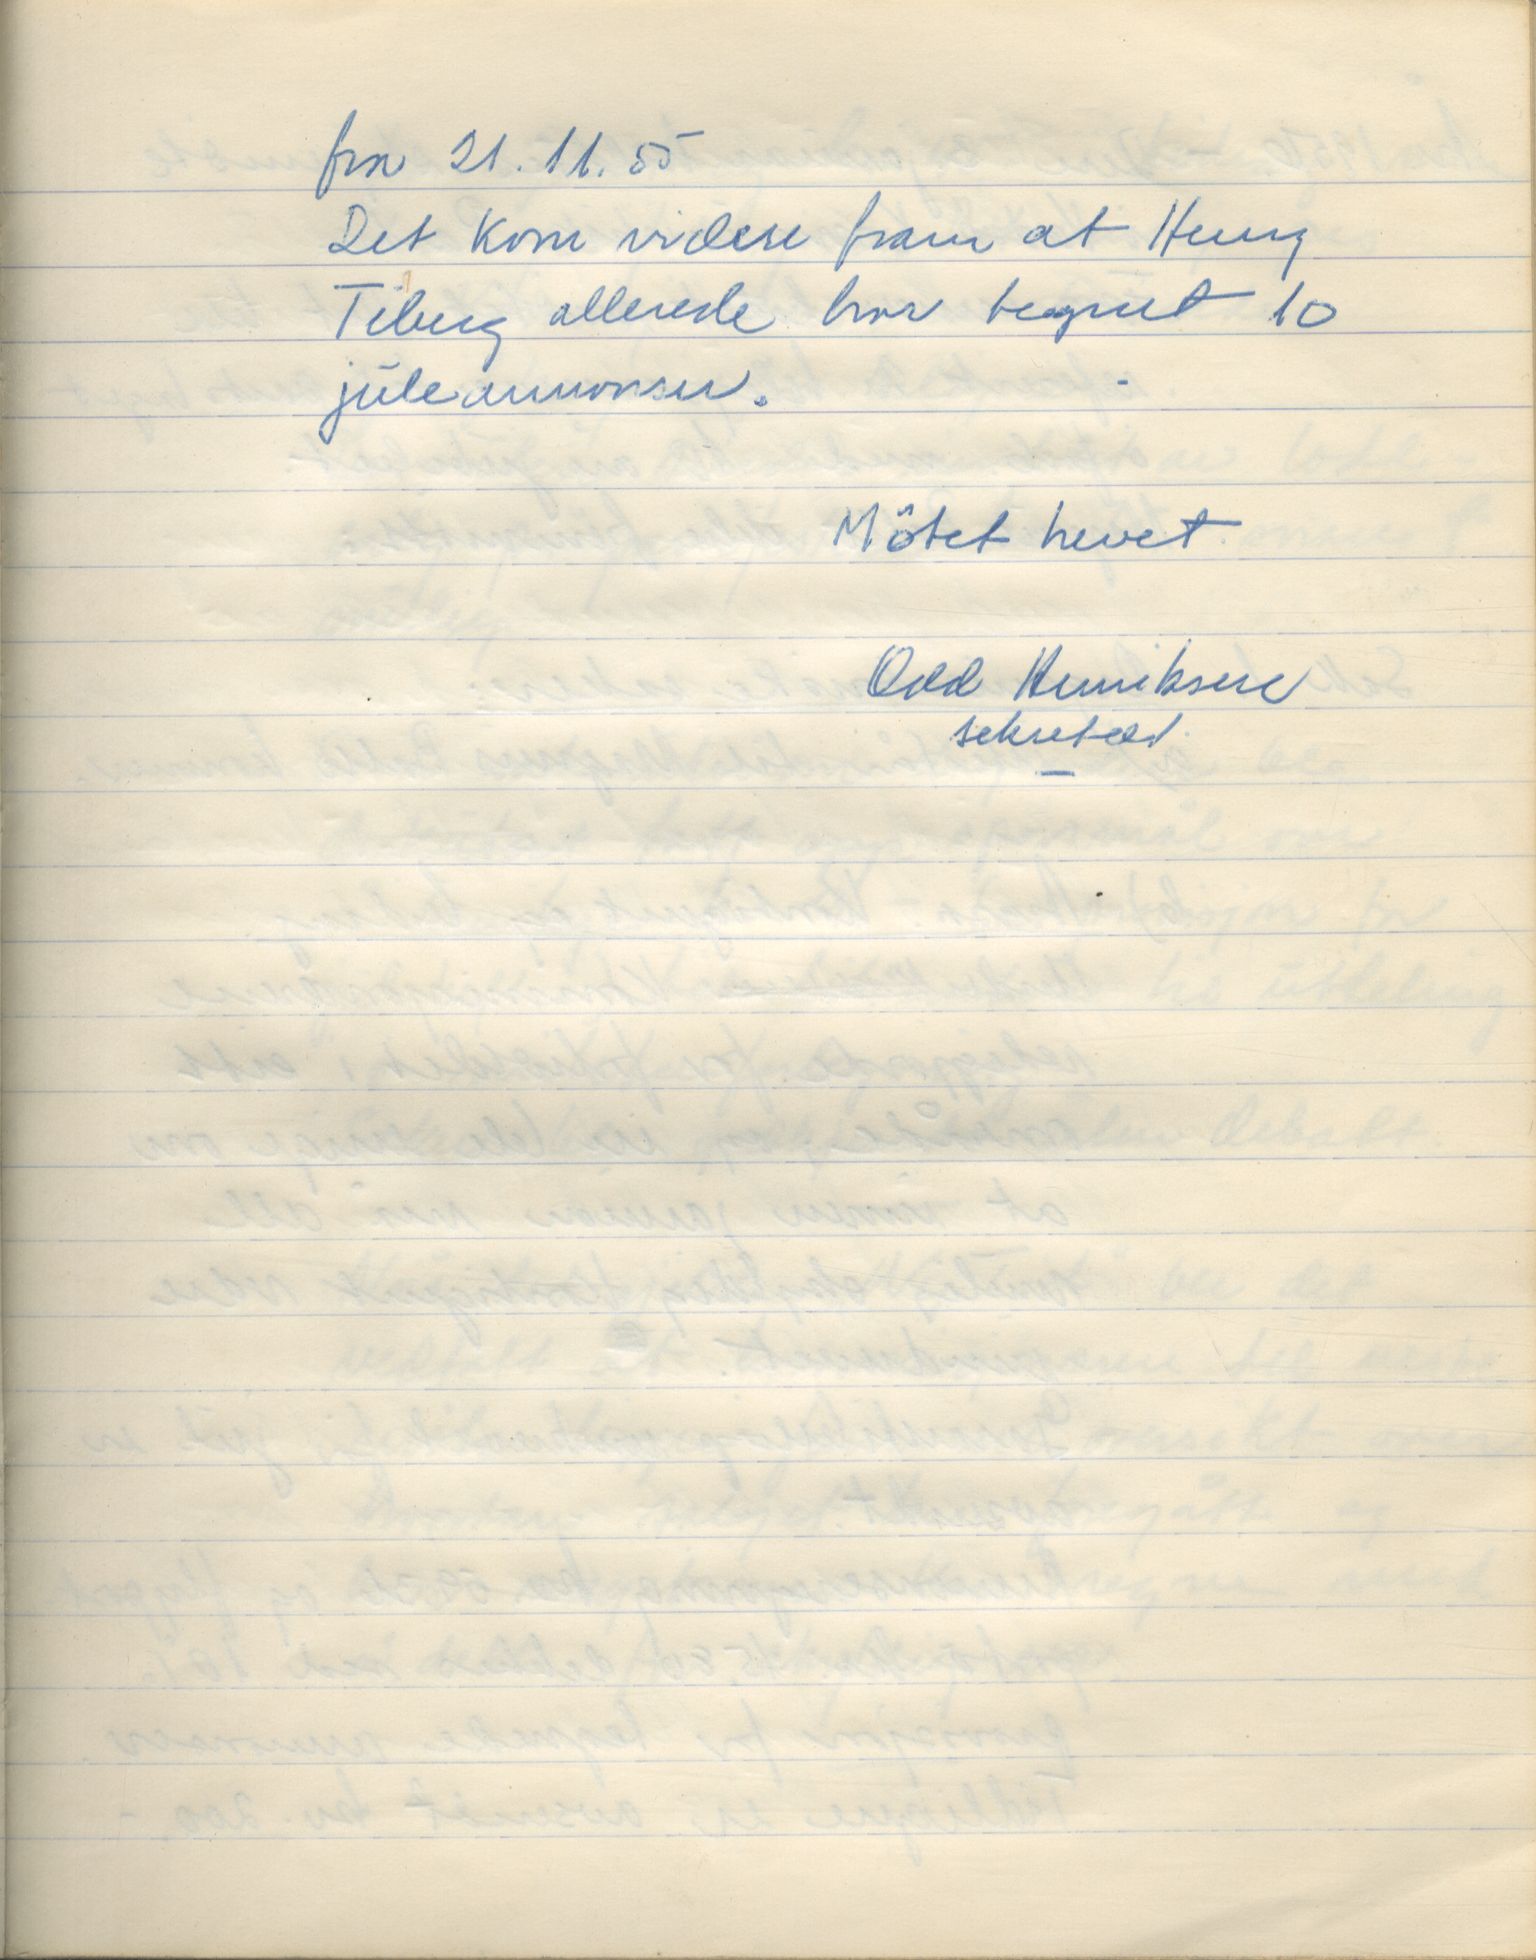 fra 21.11.55
Det kom videre fram at Henry
Tiberg allerede har tegnet 10
juleannonser.
Mötet hevet.
Odd Henriksen
sekretær